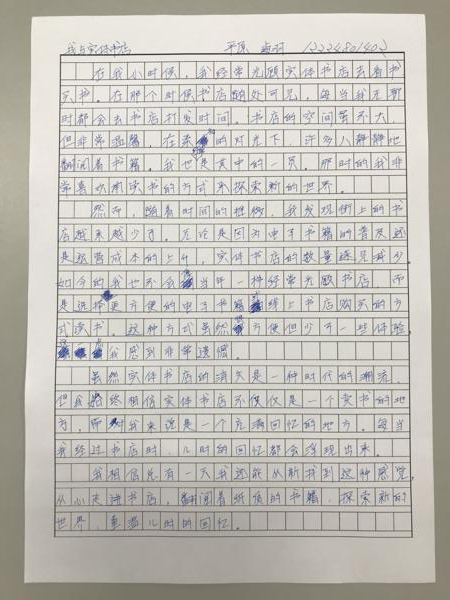 我与实体书店 平原 1224801402
在我小时候，我经常光顾实体书店去看书
买书。在那个时候书店随处可见，每当我无聊
时都会去书店打发时间。书店的空间虽不大，
但非常温馨，在柔和的灯光下，许多人静静地
翻阅着书籍。我也是其中的一员，那时的我非
常喜欢用读书的方式来探索新的世界。
然而，随着时间的推移，我发现街上的书
店越来越少了。无论是因为电子书籍的普及还
是运营成本的上升，实体书店的数量逐见减少
如今的我也不会当年一样经常光顾书店，而
是选择更方便的电子书籍线上书店购买的方
式读书。这种方式虽然方便但少了一些体验
我感到非常遗憾
虽然实体书店的消失是一种时代的潮流，
但我始终相信实体书店不仅仅是一个卖书的地
方，而对我来说是一个充满回忆的地方。每当
我经过书店时，儿时的回忆都会浮现出来。
我相信总有一天我还能从新找到这种感觉，
从心走进书店，翻阅着纸质的书籍，探索新的
世界，重温儿时的回忆。